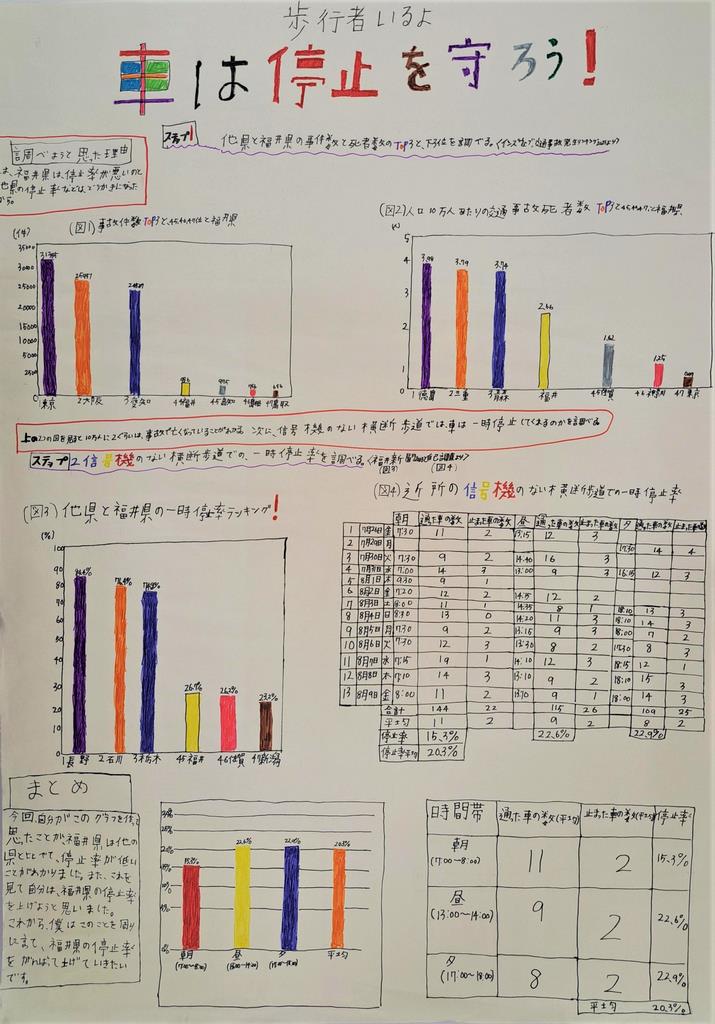 歩行者いるよ
車は停止を守ろう!
ステップ1
他県と福井県の事件数と死者数のTOP3と、下3位を調べる。
調べようと思った理由
は、福井県は、停止率が悪いのと
他県の停止率などは、どうかきになった
から。
(図1)事故件数TOP3と、45,46,47位と福井県
(図2)人口10万人あたりの交通事故死者数TOP3と45,46,47と福井県
(件)
35000
30000
25000
20000
15000
10000
5000
2500
0
1東京
2大阪
3愛知
5
4
3
2
1
0
3.98
3.79
3.74
2.46
1.62
1.25
1徳島
2三重
3青森
福井
45滋賀
46神奈川
47東京
上の2つの図を見ると10万人に2ぐらいは、事故で亡くなっていることがわかる。次に、信号機のない横断歩道では、車は一時停止してくれるのかを調べる。
ステップ2信号機のない横断歩道での、一時停止率を調べる。
(図3)
(図4)
(図3)他県と福井県の一時停止率ランキング!
(%)
100
90
80
70
60
50
40
30
20
10
0
84.4%
76.4%
74.8%
26.7%
26.2%
23.2%
1長野
2石川
3栃木
45福井
46佐賀
47新潟
(図4)近所の信号機のない横断歩道での一時停止率
朝 通った車の数 止まった車の数 昼 通った車の数 止まった車の数 夕 通った車の数 止まった車の数
1 7月26日 金 7:30 11 2 13:15 12 3
2 7月29日 月 17:30 14 4
3 7月30日 火 7:30 9 2 14:40 16 3
4 7月31日 水 7:00 14 3 13:00 9 3 16:15 12 3
5 8月1日 木 9:30 9 1
6 8月2日 金 7:20 12 2 14:35 12 2
7 8月3日 土 8:00 11 1 14:35 8 1 18:10 13 3
8 8月4日 日 8:30 13 0 14:20 11 3 18:10 14 3
9 8月5日 月 7:30 9 2 13:15 9 3 18:00 7 2
10 8月6日 火 7:30 12 3 13:30 8 2 17:30 8 3
11 8月7日 水 7:15 19 1 14:10 12 3 18:15 12 1
12 8月8日 木 7:10 14 3 13:10 9 2 18:10 15 3
13 8月9日 金 8:00 11 2 9 1 18:00 14 3
合計 144 22 115 26 109 25
平均 11 2 9 2 8 2
停止率 15.3% 22.6% 22.9%
停止率平均 20.3%
まとめ
今回、自分がこのグラフを作って
思ったことが、福井県は他の
県とくらべて、停止率が低い
ことがわかりました。また、これを
見て自分は、福井県の停止率
を上げようと思いました。
これから、僕はこのことを周り
に言って、福井県の停止率
をがんばって上げていきたい
です。
15.3%
22.6%
22.9%
20.3%
朝
(7:00〜8:00)
昼
(13:00〜14:00)
夕
(17:00〜18:00)
平均
時間帯 通った車の数(平均) 止まった車の数(平均) 停止率
朝
(7:00〜8:00) 11 2 15.3%
昼
(13:00〜14:00) 9 2 22.6%
夕
(17:00〜18:00) 8 2 22.9%
平均 20.3%